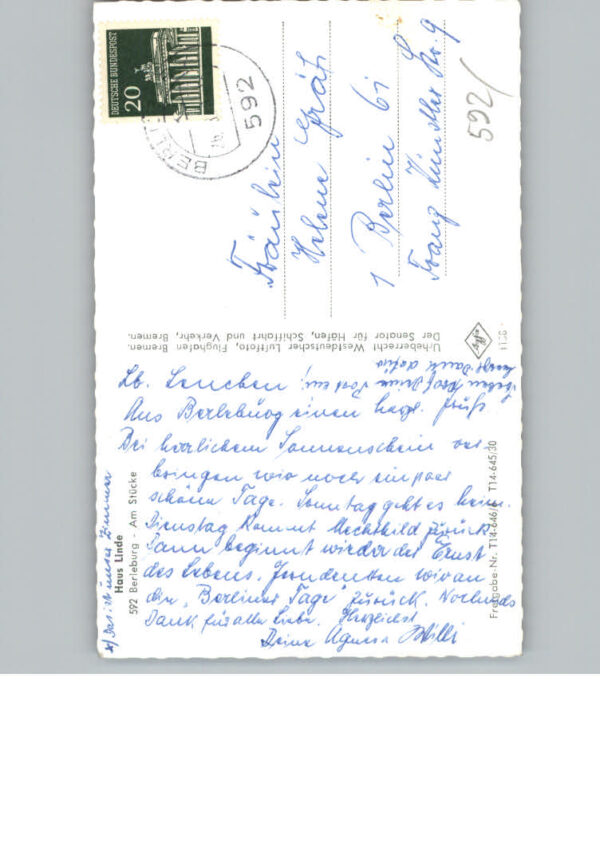 DEUTSCHE BUNDESPOST
20
BERLE
592
Fräulein
Helene Gräf
1 Berlin 61
Franz
592/
Urheberrecht Westdeutscher Luftfoto, Flughafen Bremen
Der Senator für Häfen, Schiffahrt und Verkehr, Bremen.
Agfa
Lb. Lenchen!
Aus Berleburg einen herzl. Gruß.
Bei herrlichem Sonnenschein ver
bringen wir noch ein paar
schöne Tage. Sonntag geht es heim.
Dienstag kommt Mechthild zurück
Dann beginnt wieder der Ernst
des Lebens. Gern denken wir an
die "Berliner Tage" zurück. Nochmals
Dank für alles Liebe. Herzlichst
Deine Agnes Willi
x) Das ist unser Zimmer
Haus Linde
592 Berleburg - Am Stücke
Freigabe-Nr. T14-646/ T14-645/30